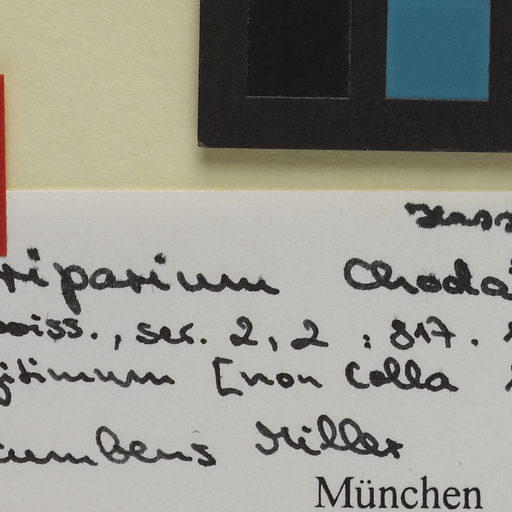 riparium Choda
oiss., ser. 2, 2 : 817.
gitimum [non Colla
cumbens Miller
München